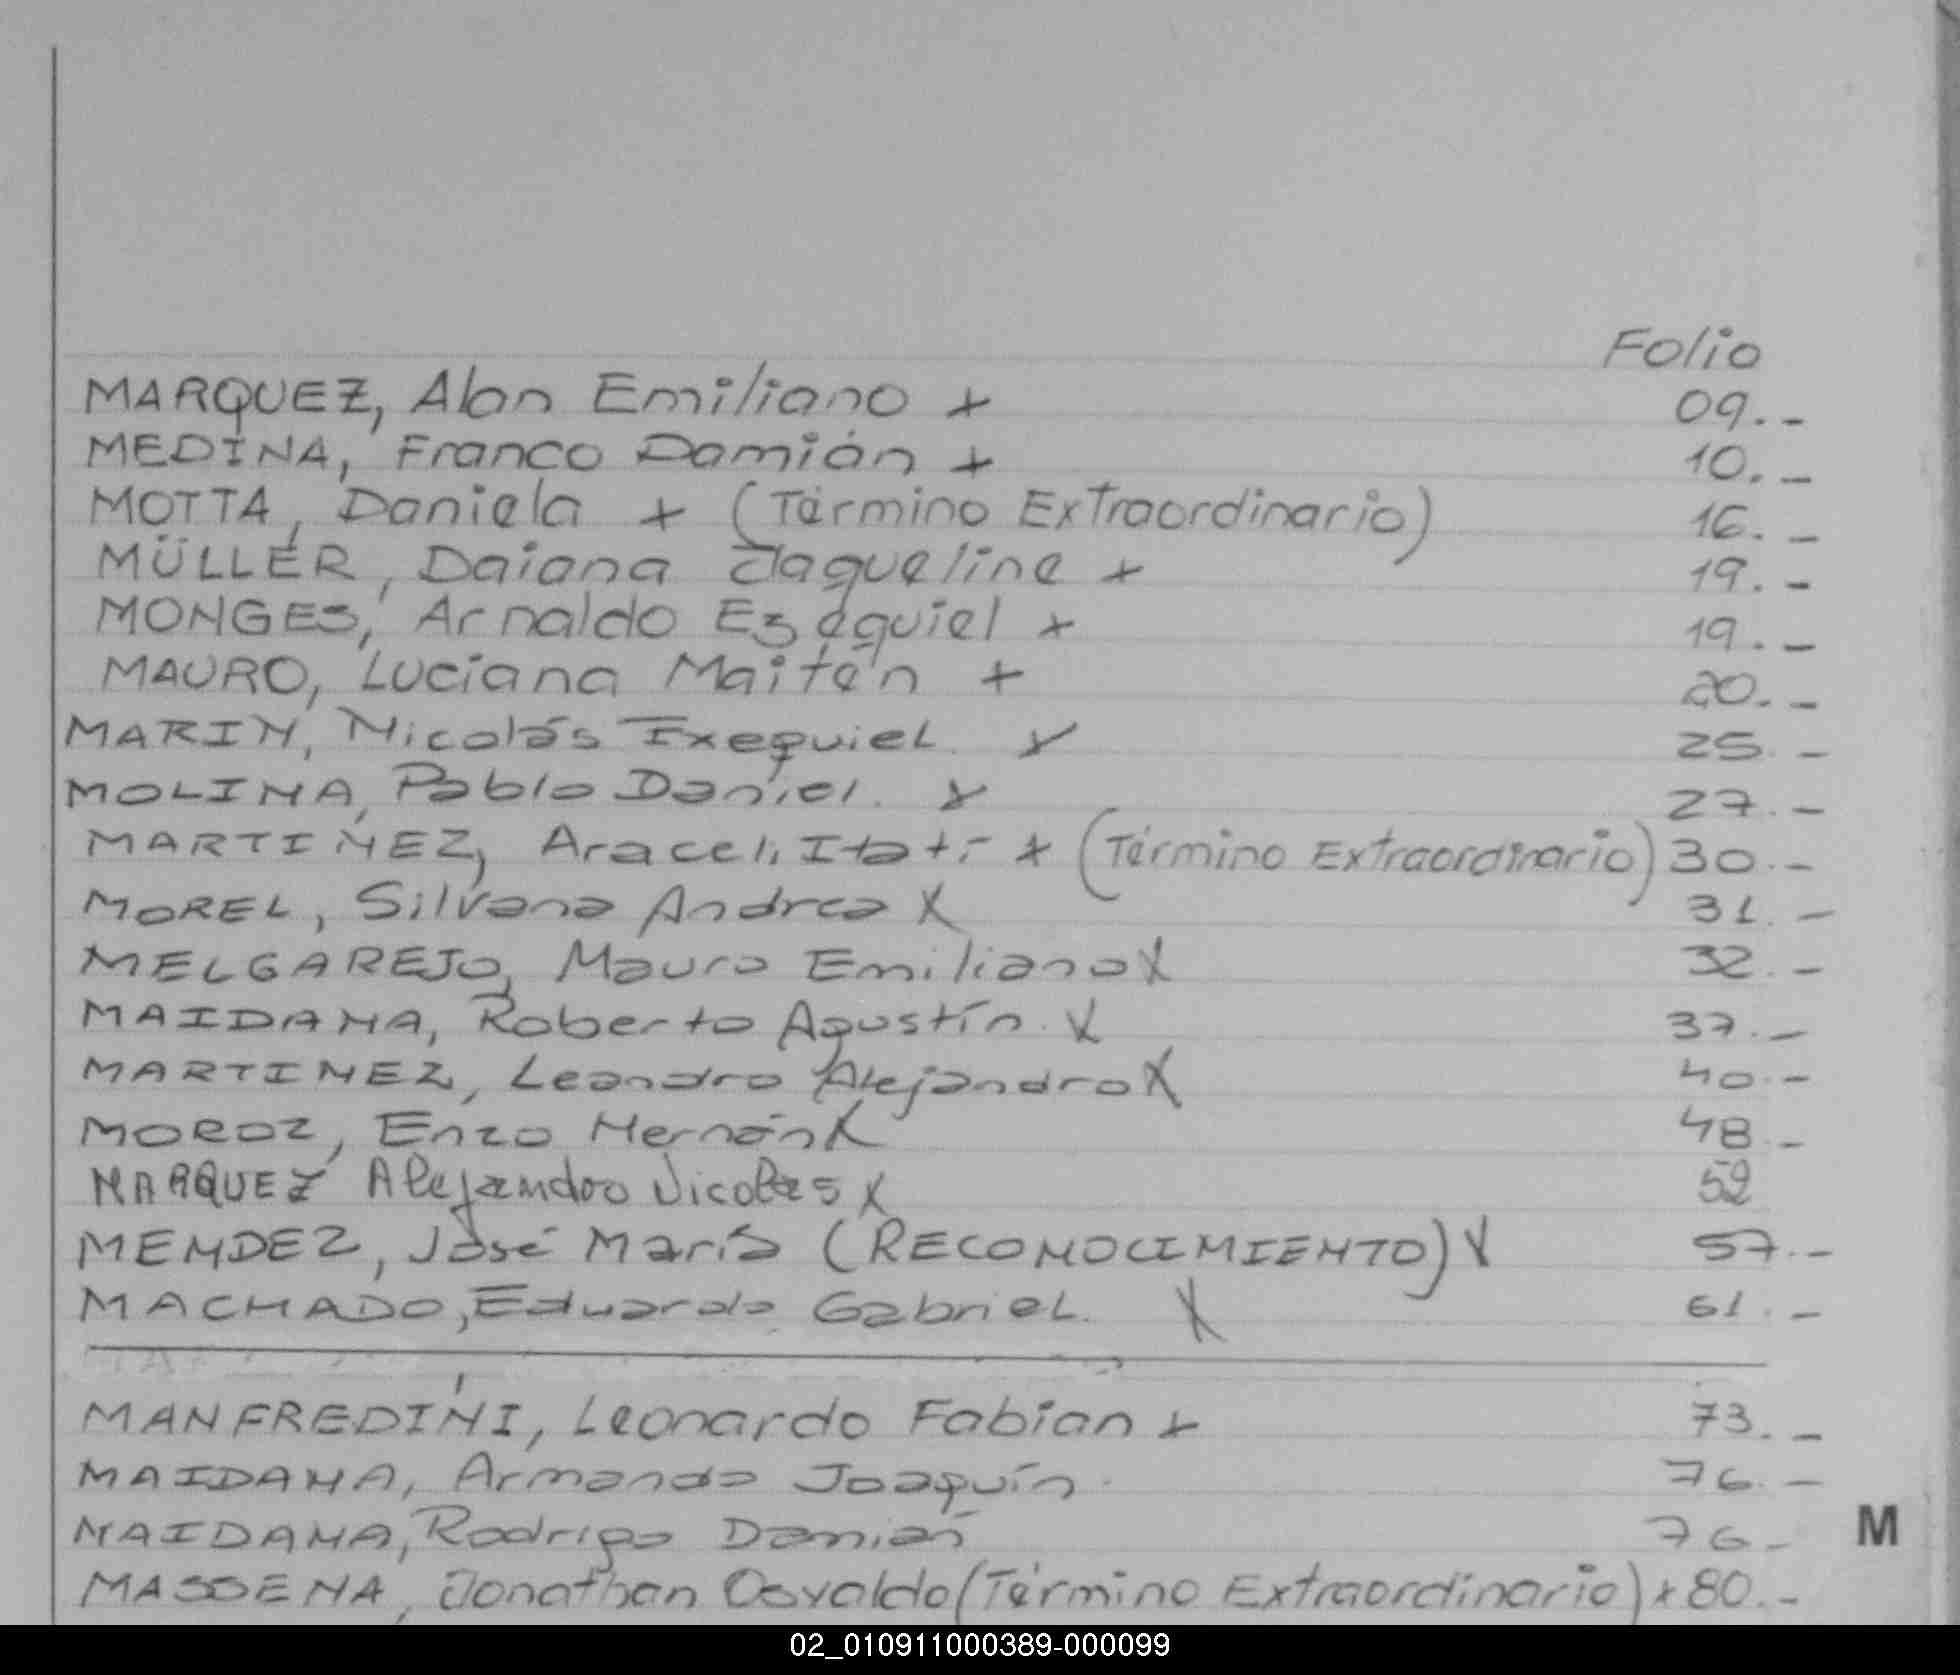 Folio
MARQUEZ, Alan Emiliano + 09.-
MEDINA, Franco Damián + 10.-
MOTTA, Daniela + (Término Extraordinario) 16.-
MÜLLER, Daiana Jaqueline + 19.-
MONGES, Arnaldo Ezequiel + 19.-
MAURO, Luciana Maitén + 20.-
MARIN, Nicolás Exequiel. x 25.-
MOLINA, Pablo Daniel. x 27.-
MARTINEZ, Araceli Itatí + (Término Extraordinario) 30.-
MOREL, Silvana Andrea X 31.-
MELGAREJO, Mauro Emiliano X 32.-
MAIDANA, Roberto Agustín. X 37.-
MARTINEZ, Leandro Alejandro X 40.-
MOROZ, Enzo Hernán X 48.-
MARQUEZ Alejandro Nicolas X 52
MENDEZ, José María (RECONOCIMIENTO) X 57.-
MACHADO, Eduardo Gabriel. X 61.-
MANFREDINI, Leonardo Fabian + 73.-
MAIDANA, Armando Joaquín. 76.-
MAIDANA, Rodrigo Damián 76.-
M
MASSENA, Jonathan Osvaldo (Término Extraordinario) x 80.-
02_010911000389-000099